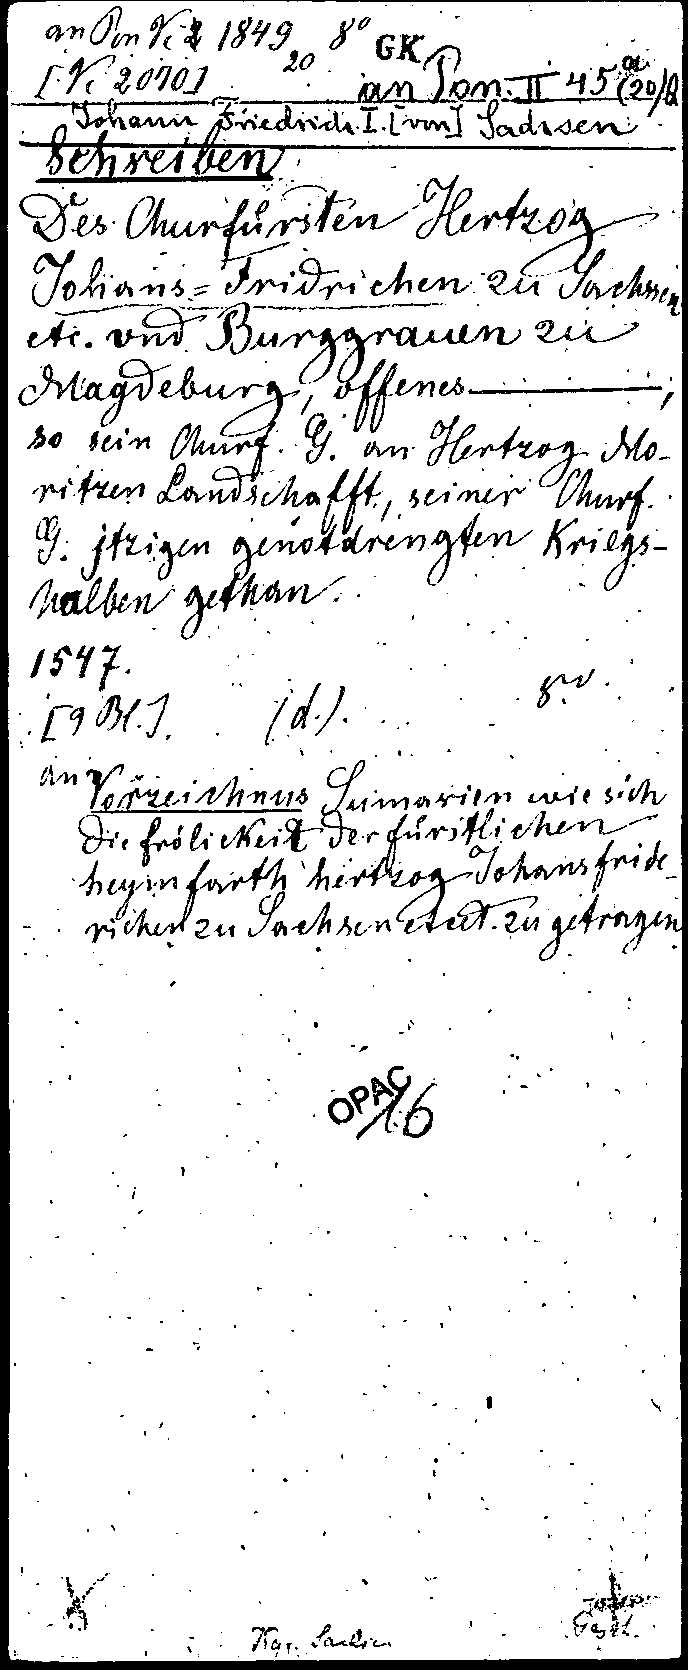 an Pon Vc 1849 8°
20 GK
[Vc 2070] an Pon. II 45 a (20)Q
Johann Friedrich I. [von] Sachsen
Schreiben
Des Churfürsten Hertzog
Johans=Fridrichen zu Sachssen
etc. vnd Burggrauen zu
Magdeburg, offenes ———;
so sein Churf. G. an Hertzog Mo-
ritzen Landschafft, seiner Churf.
G. jtzigen genotdrengten Kriegs-
halben gethan.
1547.
[9 Bl.]. (d.). 8°.
an Vorzeichnus Sumarien wie sich
die frölickeit der fürstlichen
heymfarth hertzog Johansfride-
richen zu Sachsen etcet. zu getragen
OPAC
16
Kgr. Sachsen
Gesch.